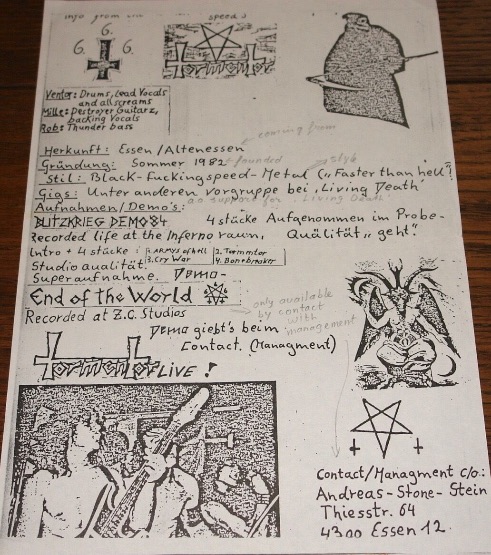 info from the speed
6.
6. 6.
Tormentor
Ventor: Drums, Lead Vocals
and all screams
Mille: Destroyer Guitarz,
backing Vocals
Rob: Thunder bass
coming from
Herkunft: Essen/Altenessen
Gründung: Sommer 1982 founded style
Stil: Black-Fuckingspeed-Metal („Faster than hell"!
Gigs: Unter anderen Vorgruppe bei „Living Death"
as support for „Living Death"
Aufnahmen/Demo's:
BLITZKRIEG DEMO 84 4 stücke Aufgenommen im Probe-
Recorded life at the Inferno raum, Quälität „geht".
Intro + 4 stücke: 1. Armys of hell 2. Tormentor
3. Cry War 4. Bonebreaker
Studio qualität.
Superaufnahme. Demo-
End of the World
only available
by contact
with
management
Recorded at Z.C. Studios
Demo giebt's beim
Contact. (Managment)
Tormentor LIVE!
Contact/Managment c/o:
Andreas-Stone-Stein
Thiesstr. 64
4300 Essen 12.